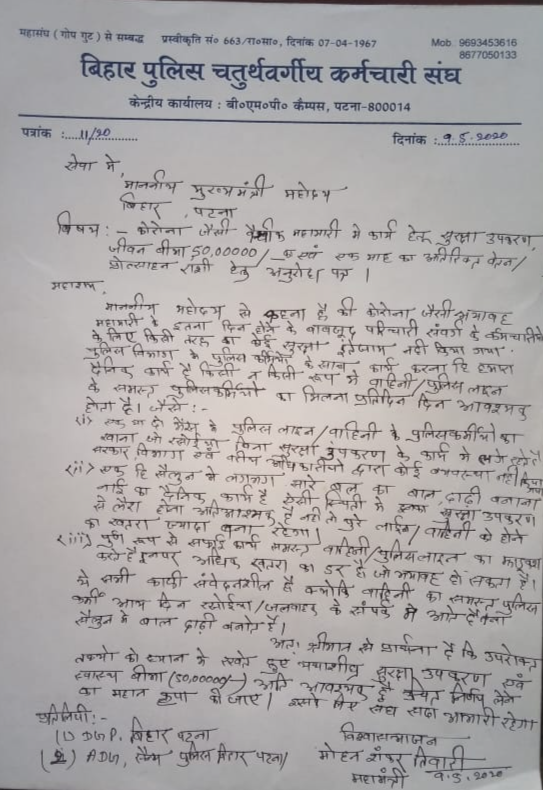 महासंघ ( गोप गुट ) से सम्बद्ध प्रस्वीकृति सं० 663/रा०सा०, दिनांक 07-04-1967 Mob. 9693453616
8677050133
बिहार पुलिस चतुर्थवर्गीय कर्मचारी संघ
केन्द्रीय कार्यालय : बी०एम०पी० कैम्पस, पटना-800014
पत्रांक :.....11/20 दिनांक :..9.5.2020
सेवा में,
माननीय मुख्यमंत्री महोदय
बिहार, पटना
विषय :- कोरोना जैसी वैश्विक महामारी में कार्य हेतु सुरक्षा उपकरण,
जीवन बीमा 50,00000/- रु एवं एक माह का अतिरिक्त वेतन/
प्रोत्साहन राशी हेतु अनुरोध पत्र ।
महाशय,
माननीय महोदय से कहना है की कोरोना जैसी भयावह
महामारी के इतना दिन होने के बावजूद परिचारी संवर्ग के कर्मचारियों
के लिए किसी तरह का कोई सुरक्षा इंतेजाम नहीं किया गया
पुलिस विभाग के पुलिस कर्मियों के साथ कार्य करना हि हमारा
दैनिक कार्य है किसी न किसी रूप में वाहिनी/पुलिस लाइन
के समस्त पुलिसकर्मियों का मिलना प्रतिदिन दिन आवश्यक
होता है। जैसे :-
(i) एक या दो मेस में पुलिस लाइन/वाहिनी के पुलिसकर्मियों का
खाना जो रसोईया बिना सुरक्षा उपकरण के कार्य में लगे रहते हैं
सरकार विभाग एवं वरीय अधिकारीयों द्वारा कोई व्यवस्था नहीं किया गया
(ii) एक हि सैलुन में लगभग सारे बल का बाल, दाढ़ी बनाना
नाई का दैनिक कार्य है ऐसी स्थिती में इनका सुरक्षा उपकरण
से लैस होना अतिआवश्यक है नहीं तो पुरे लाईन/वाहिनी को होने
का खतरा ज्यादा बना रहेगा।
(iii) पुर्ण रूप से सफाई कार्य समस्त वाहिनी/पुलिस लाइन का
करते हैं इनपर अधिक खतरा का डर है जो भयावह हो सकता है।
ये सभी काफी संवेदनशील है क्योंकि वाहिनी का समस्त पुलिस
कर्मी आय दिन रसोईया/जलवाहक के संपर्क में आते हैं
सैलुन में बाल दाढ़ी बनाते हैं।
अतः श्रीमान से प्रार्थना है कि उपरोक्त
तथ्यों को ध्यान में रखते हुए यथाशीघ्र सुरक्षा उपकरण एवं
स्वास्थ बीमा (50,00000/-) अति आवश्यक है उचित निर्णय लेने
का महान कृपा की जाए। इसके लिए संघ सदा आभारी रहेगा
प्रतिलिपी :-
(1) DGP. बिहार पटना विश्वासभाजन
(2) ADG, सैन्य पुलिस बिहार पटना मोहन शंकर तिवारी
महामंत्री 9.5.2020